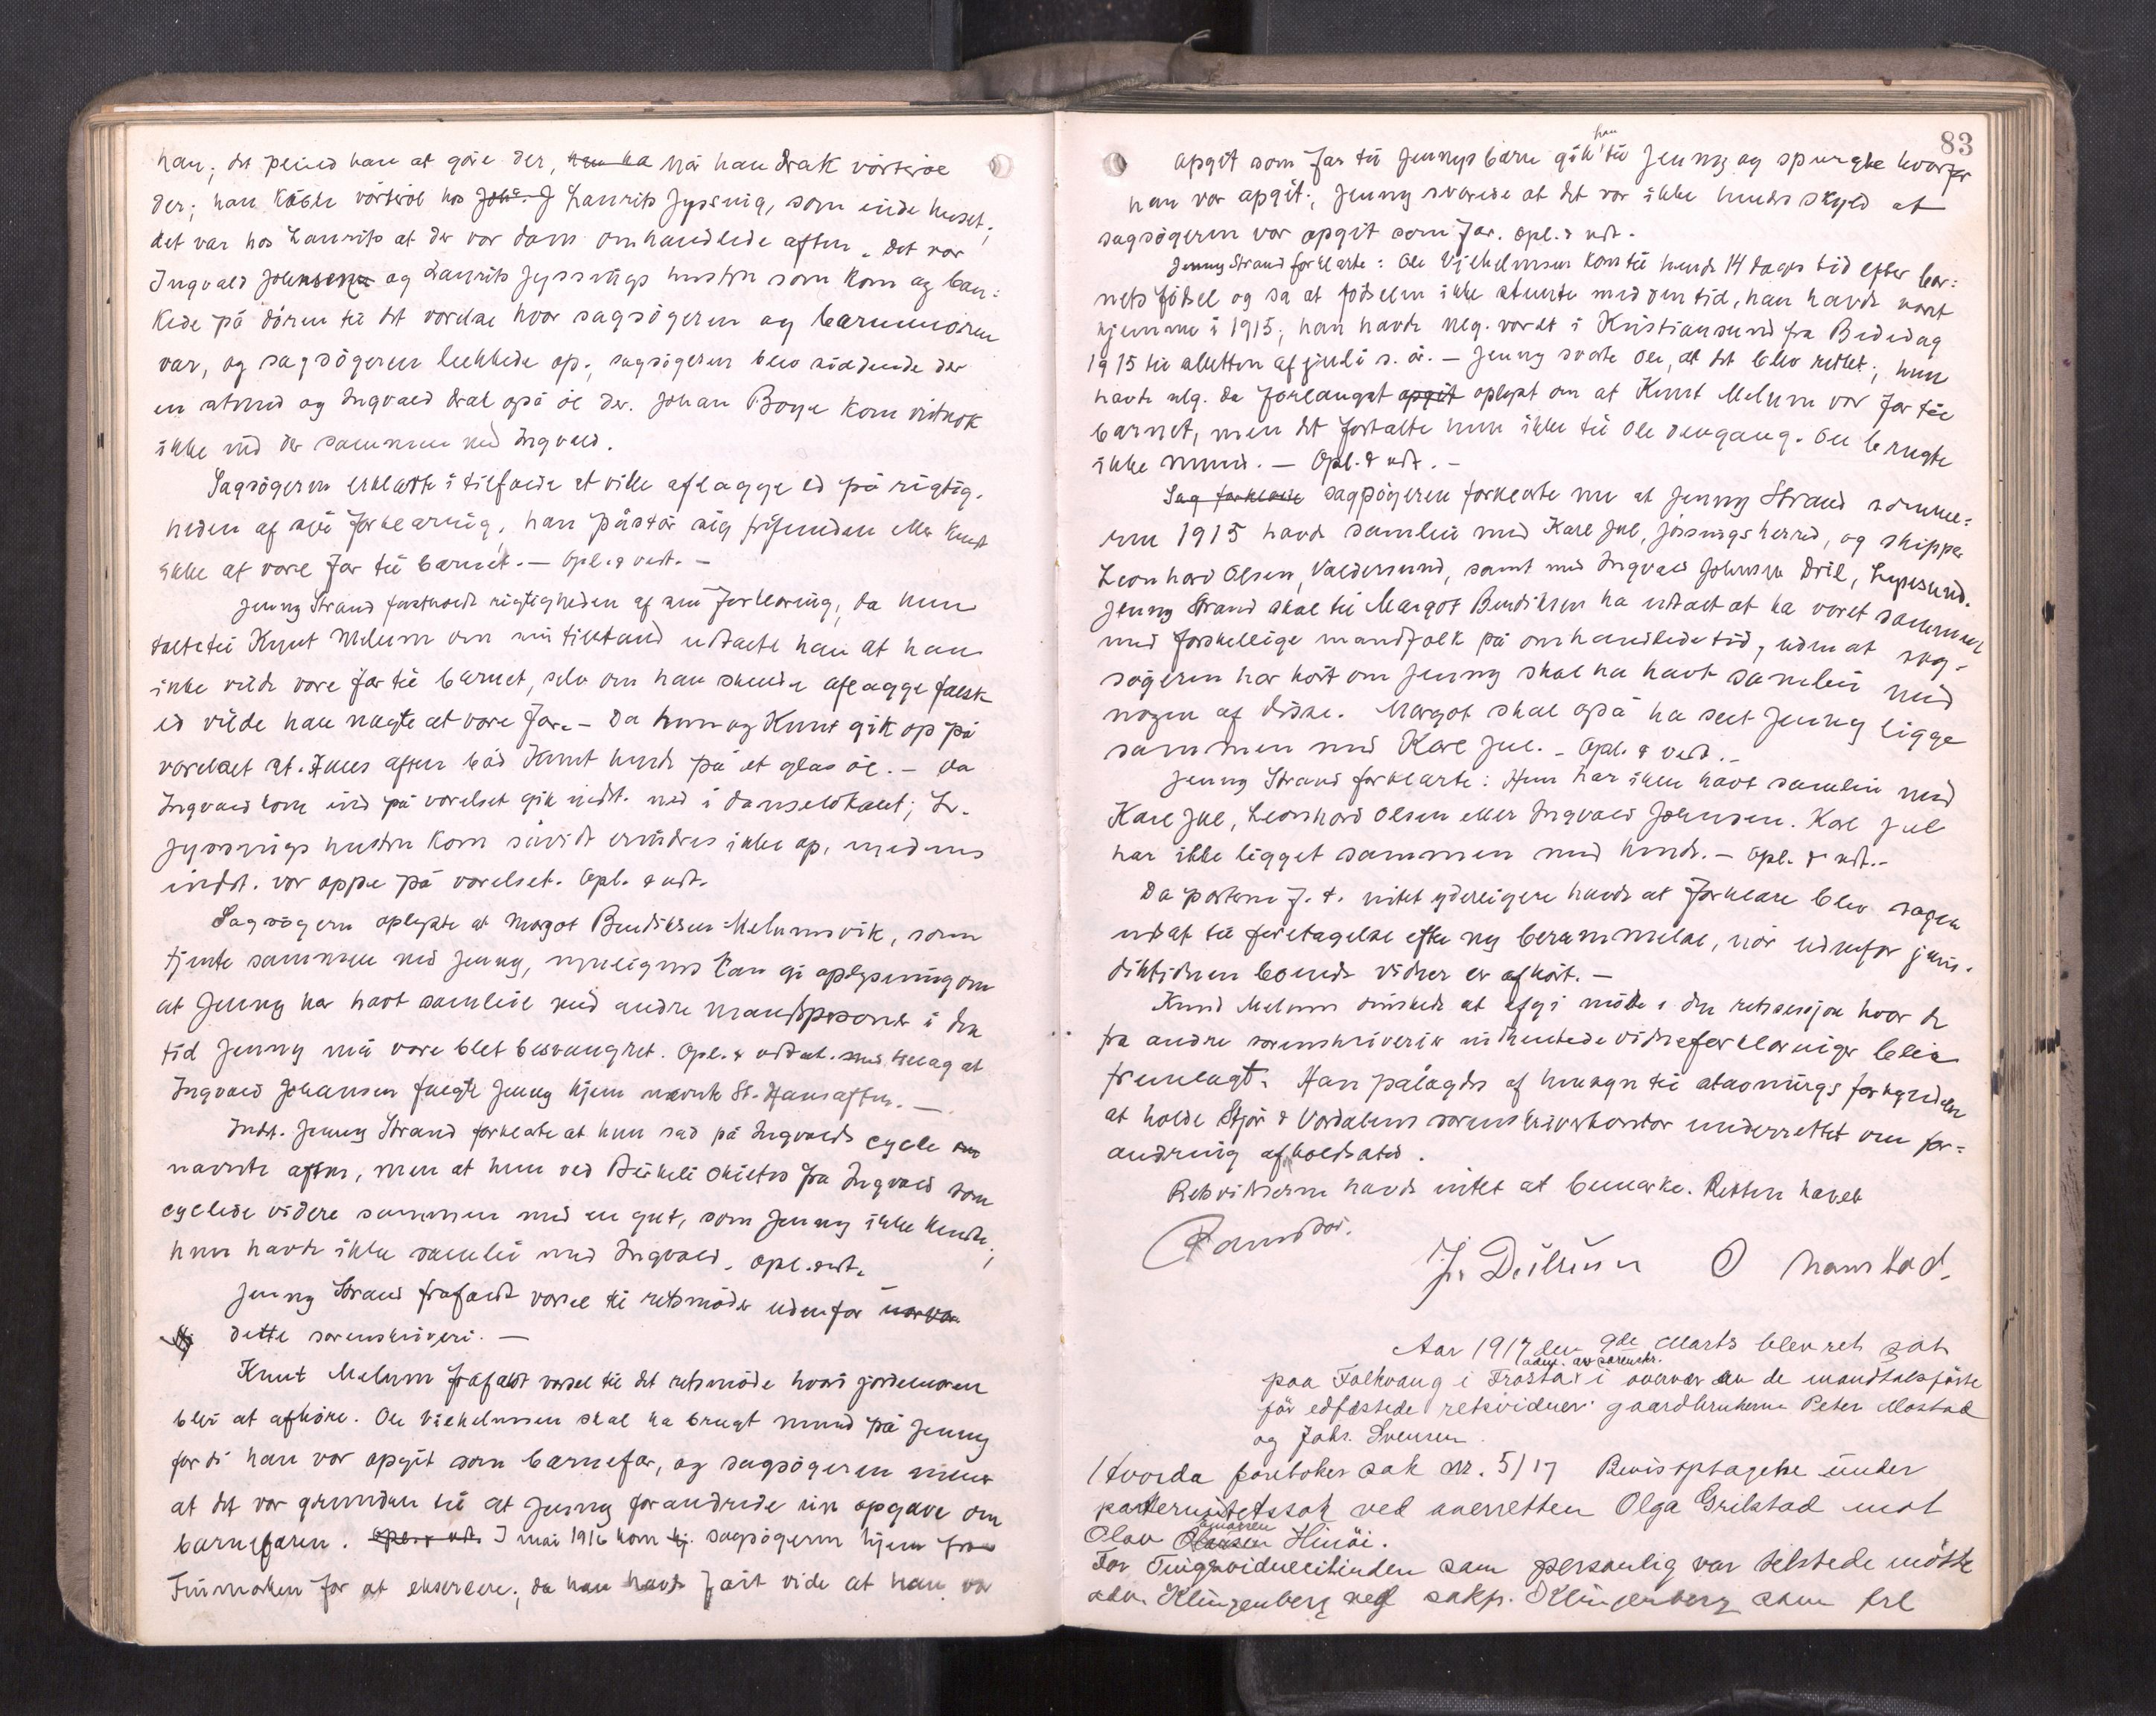 han; det pleied han at göre der, når han drak vörteröl
der; han köbte vörteröl hos Laurits Jyssing, som eiede huset;
det var hos Laurits at der var dans omhandlede aften. Det var
Ingvald Johnsen og Laurits Jyssings hustru som kom og ban:
kede på dören til det værelse hvor sagsögeren og barnemoren
var, og sagsögeren lukkede op; sagsögeren blev siddende der
en stund og Ingvald drak også öl der. Johan Boya kom vistnok
ikke ind der sammen med Ingvald.
Sagsögeren erklærte i tilfælde at ville aflægge ed på rigtig-
heden af sin forklaring, han påstår sig frifunden eller kendt
ikke at være far til barnet. — Opl. & vedt. —
Jenny Strand fastholdt rigtigheden af sin forklaring, da hun
talte til Knut Melum om sin tilstand udtalte han at han
ikke vilde være far til barnet, selv om han skulde aflægge falsk
ed vilde han nægte at være far. — Da hun og Knut gik op på
værelset St. Hans aften bød Knut hende på et glas öl. — Da
Ingvald kom ind på værelset gik indst. ned i danselokalet; L.
Jyssings hustru kom såvidt erindres ikke op, medens
indst. var oppe på værelset. Opl. & vedt.
Sagsögeren oplyste at Margot Bendiksen Melumsvik, som
tjente sammen med Jenny, muligens kan gi oplysning om
at Jenny har havt samleie med andre mandspersoner i den
tid Jenny må være blet besvangret. Opl. & vedtat. med tillæg at
Ingvald Johansen fulgte Jenny hjem nævnte St. Hansaften. —
Indst. Jenny Strand forklarte at hun sad på Ingvalds cycle
nævnte aften, men at hun ved Birkeli skiltes fra Ingvald som
cyclede videre sammen med en gut, som Jenny ikke kendte;
hun havde ikke samleie med Ingvald. Opl. & vedt.
Jenny Strand frafaldt varsel til retsmöder udenfor
dette sorenskriveri. —
Knut Melum frafaldt varsel til det retsmöde hvori jordemoren
blir at afhöre. Ole Vilhelmsen skal ha brugt mund på Jenny
fordi han var opgit som barnefar, og sagsögeren mener
at det var grunden til at Jenny forandrede sin opgave om
barnefaren. I mai 1916 kom sagsögeren hjem fra
Finmarken for at eksercere; da han havde fåt vide at han var
83
opgit som far til Jennys barn gik han til Jenny og spurgte hvorfor
han var opgit; Jenny svarede at det var ikke hendes skyld at
sagsögeren var opgit som far. Opl. & vedt.
Jenny Strand forklarte: Ole Vilhelmsen kom til hende 14 dages tid efter bar:
nets födsel og sa at födselen ikke stemte med den tid, han havde vært
hjemme i 1915; han havde nlg. været i Kristiansund fra Bededag
1915 til slutten af juli s. år. — Jenny svarte Ole, at det blev rettet; hun
havde nlg. da forlangst oplyst om at Knut Melum var far til
barnet, men det fortalte hun ikke til Ole dengang. Ole brugte
ikke mund. — Opl. & vedt. —
sagsögeren forklarte nu at Jenny Strand somme:
ren 1915 havde samleie med Karl Jul, Jössingsherred, og skipper
Leonhard Olsen, Valdersund, samt med Ingvald Johnsen Dril, Lysösund.
Jenny Strand skal til Margot Bendiksen ha udtalt at ha været sammen
med forskellige mandfolk på omhandlede tid, uden at sag-
sögeren har hört om Jenny skal ha havt samleie med
nogen af disse. Margot skal også ha seet Jenny ligge
sammen med Karl Jul. — Opl. & vedt. —
Jenny Strand forklarte: Hun har ikke havt samleie med
Karl Jul, Leonhard Olsen eller Ingvald Johnsen. Karl Jul
har ikke ligget sammen med hende. — Opl. & vedt. —
Da parterne f. t. intet yderligere havde at forklare blev sagen
udsat til foretagelse efter ny berammelse, når udenfor juris-
diktionen boende vidner er afhört. —
Knud Melum önskede at afgi möde i den retssession hvor de
fra andre sorenskriverier indhentede vidneforklaringer blir
fremlagt. Han pålagdes af hensyn til stævningsforkyndelse
at holde Stjör & Værdalens sorenskriverkontor underrettet om for-
andring af holdssted.
Retsvidnerne havde intet at bemærke. Retten hævet
Ramstad.
J. Dillusen O Namstad.
Aar 1917 den 9de Marts blev ret sat
paa Folkvang i Frosta adm. av sorenskr. i overvær av de mandtalsförte
för edfæstede retsvidner gaardbrukerne Peter Mostad
og Johs. Svensen.
Hvorda foretokes sak nr. 5/17 Bevisoptagelse under
paternitetssak ved overretten Olga Grilstad mot
Olav Hinöi.
For Tingsvidnecitinden som personlig var tilstede mötte
adv. Klingenberg ved sakf. Klingenberg som frl